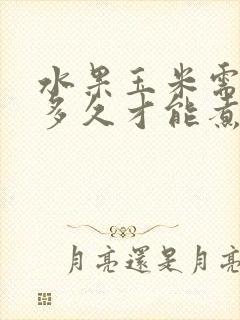 水果玉米需
多久才能煮
月亮還是月亮